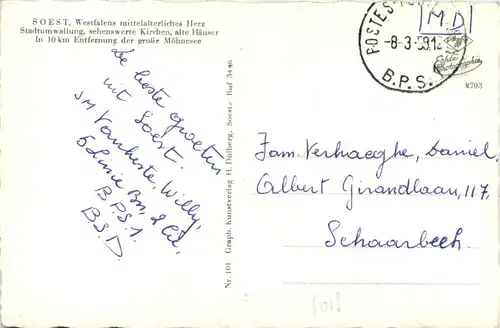 SOEST, Westfalens mittelalterliches Herz
Stadtumwallung, sehenswerte Kirchen, alte Häuser
In 10 km Entfernung der große Möhnesee
POSTES
-8-3-59.12
B.P.S.
M.D
Echte Photographie
k793
De beste groeten
uit Soest.
SM Vanheste, Willy,
5 Linie Bn, 2 Cie,
B.P.S 1.
B.S.D.
Nr. 101 · Graph. Kunstverlag H. Dülberg, Soest · Ruf 3446
Fam. Verhaeghe, Daniel,
Albert Girandlaan, 117,
Schaarbeek.